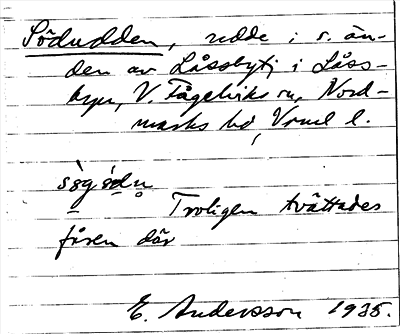 Södudden, udde i s. än-
den av Låssbytj i Låss-
byn, V. Fågelviks sn, Nord-
marks hd, Vrml l.
Troligen tvättades
fåren där
E. Andersson 1935.